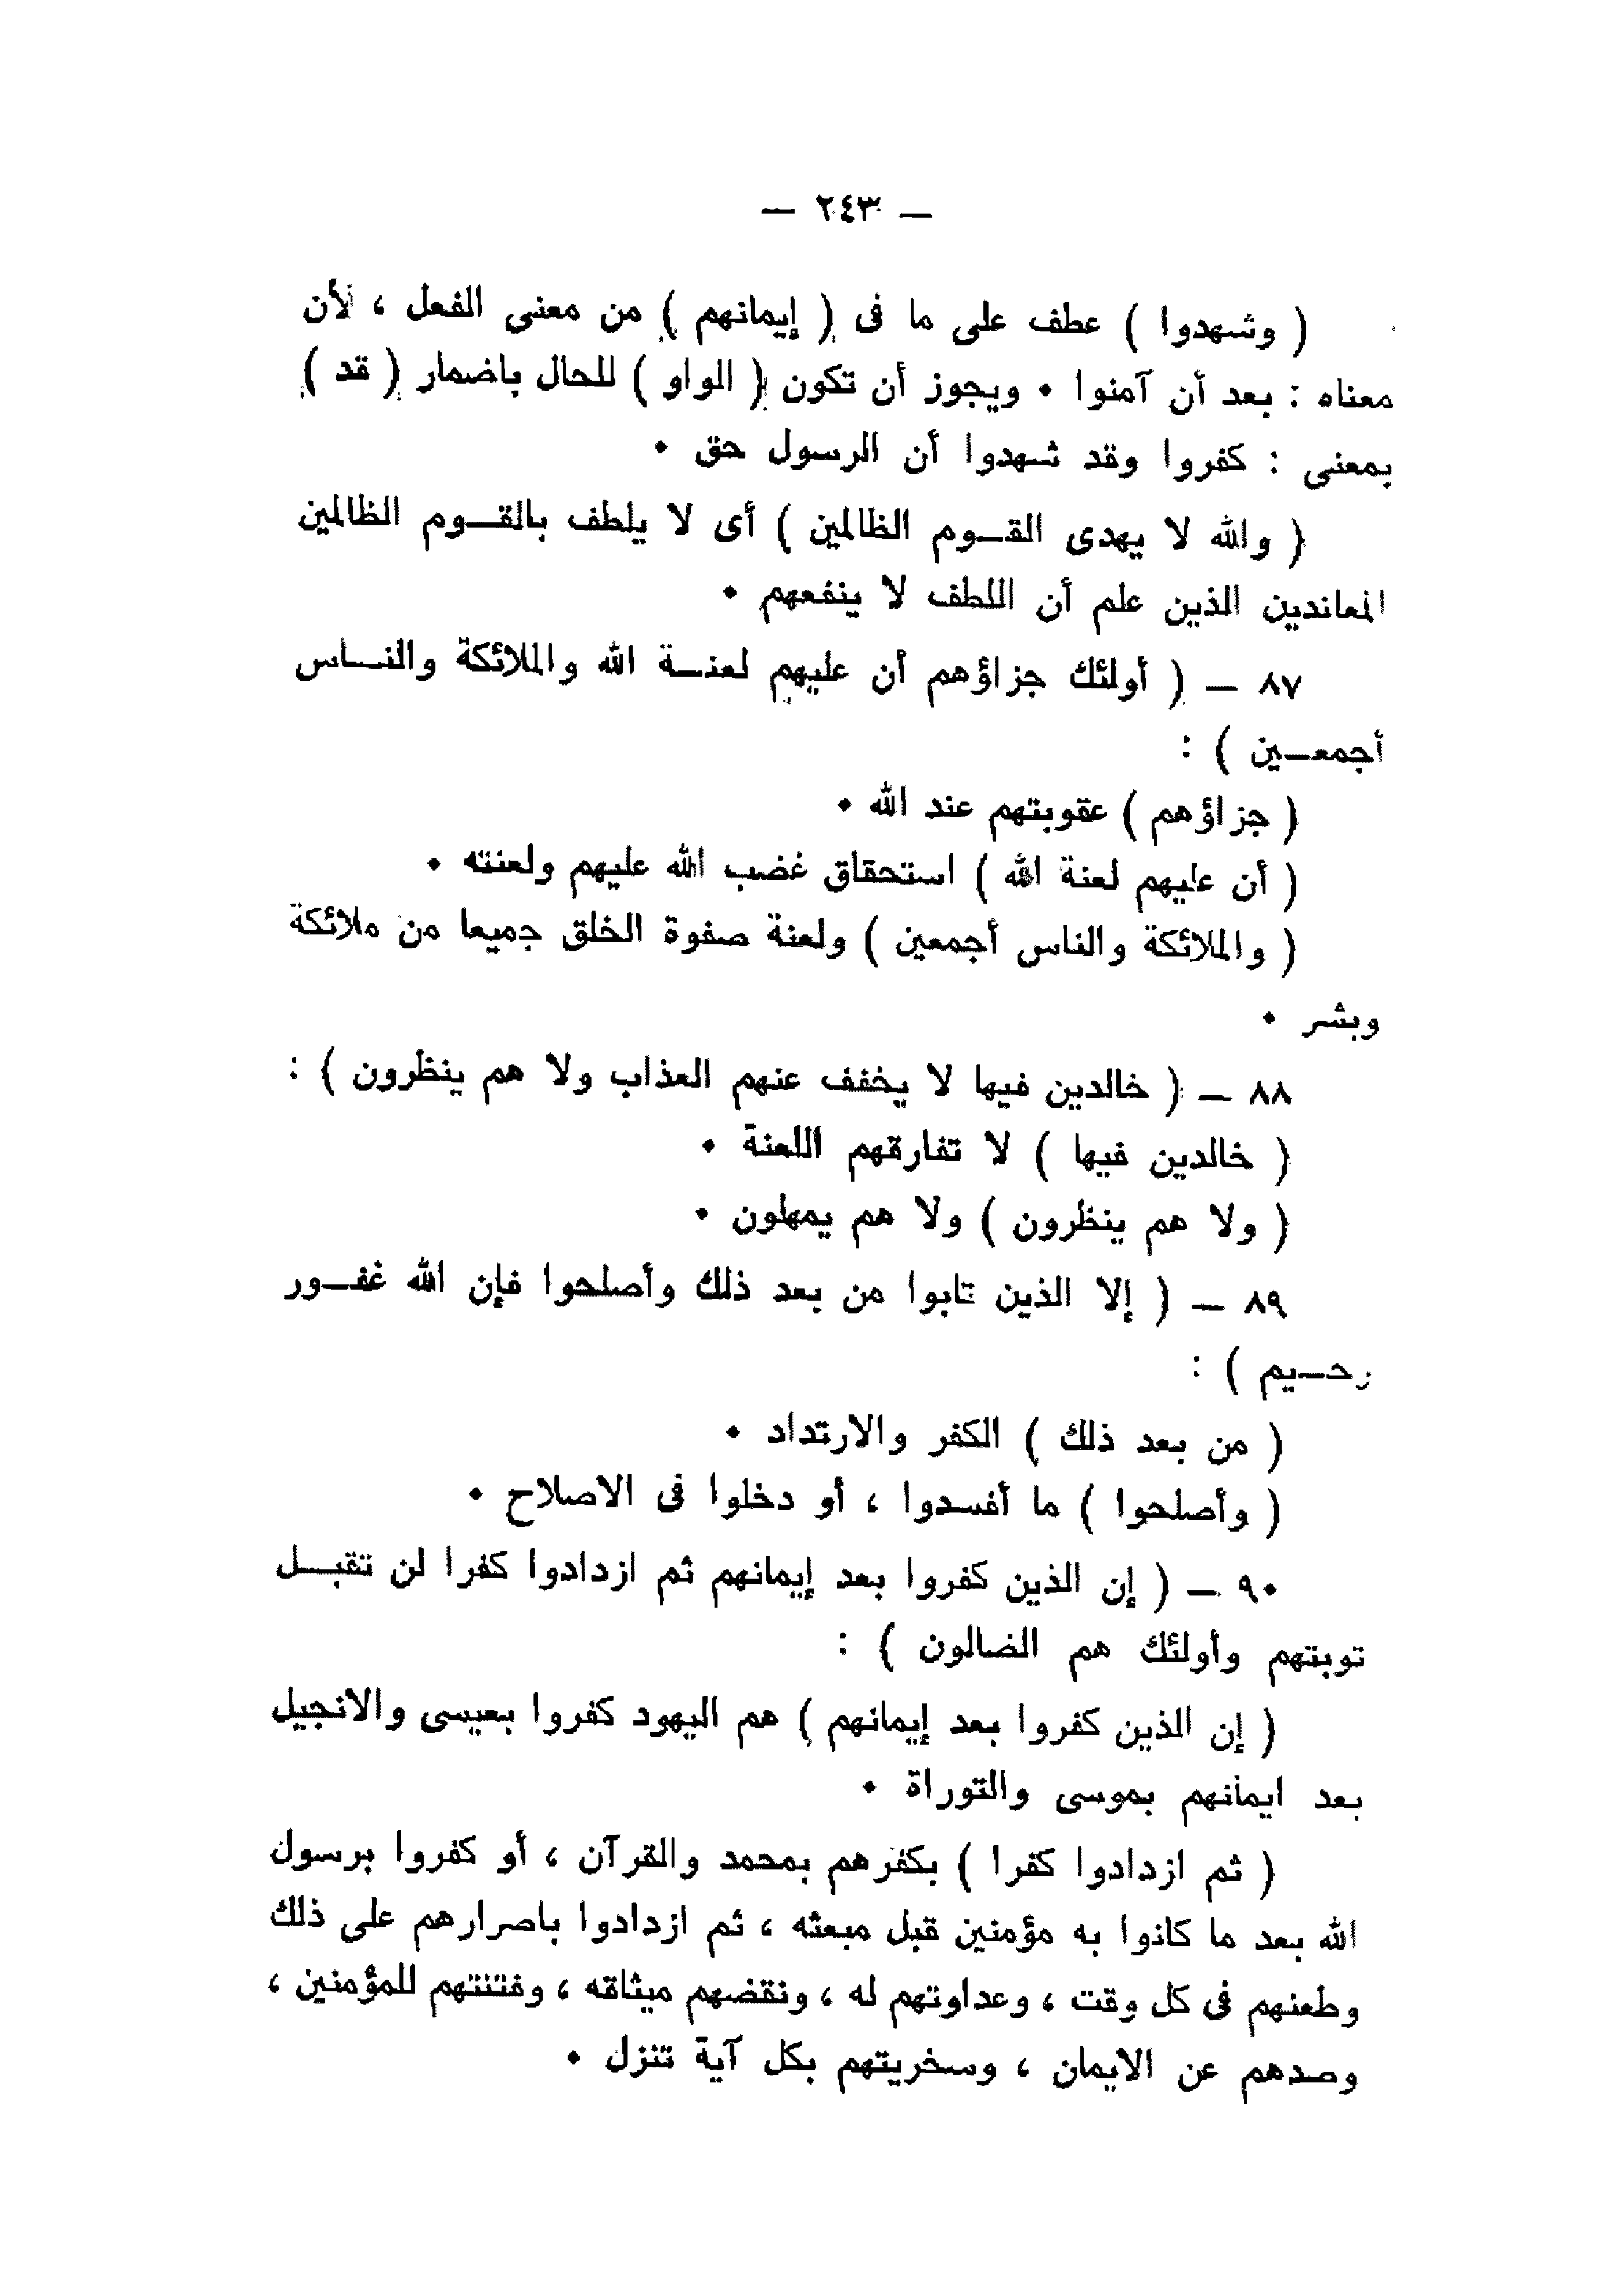 — ٢٤٣ —
( وشهدوا ) عطف على ما فى ( إيمانهم ) من معنى الفعل ، لأن
معناه : بعد أن آمنوا • ويجوز أن تكون ( الواو ) للحال باضمار ( قد )
بمعنى : كفروا وقد شهدوا أن الرسول حق •
( والله لا يهدى القـوم الظالمين ) أى لا يلطف بالقـوم الظالمين
المعاندين الذين علم أن اللطف لا ينفعهم •
٨٧ — ( أولئك جزاؤهم أن عليهم لعنـة الله والملائكة والنـاس
أجمعـين ) :
( جزاؤهم ) عقوبتهم عند الله •
( أن عليهم لعنة الله ) استحقاق غضب الله عليهم ولعنته •
( والملائكة والناس أجمعين ) ولعنة صفوة الخلق جميعا من ملائكة
وبشر •
٨٨ — ( خالدين فيها لا يخفف عنهم العذاب ولا هم ينظرون ) :
( خالدين فيها ) لا تفارقهم اللعنة •
( ولا هم ينظرون ) ولا هم يمهلون •
٨٩ — ( إلا الذين تابوا من بعد ذلك وأصلحوا فإن الله غفـور
رحـيم ) :
( من بعد ذلك ) الكفر والارتداد •
( وأصلحوا ) ما أفسدوا ، أو دخلوا فى الاصلاح •
٩٠ — ( إن الذين كفروا بعد إيمانهم ثم ازدادوا كفرا لن تقبـل
توبتهم وأولئك هم الضالون ) :
( إن الذين كفروا بعد إيمانهم ) هم اليهود كفروا بعيسى والانجيل
بعد ايمانهم بموسى والتوراة •
( ثم ازدادوا كفرا ) بكفرهم بمحمد والقرآن ، أو كفروا برسول
الله بعد ما كانوا به مؤمنين قبل مبعثه ، ثم ازدادوا باصرارهم على ذلك
وطعنهم فى كل وقت ، وعداوتهم له ، ونقضهم ميثاقه ، وفتنتهم للمؤمنين ،
وصدهم عن الايمان ، وسخريتهم بكل آية تنزل •